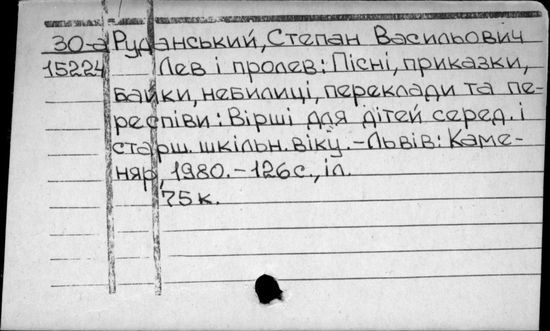 30-а Руданський, Степан Васильович
15224 Лев і пролев: Пісні, приказки,
байки, небилиці, переклади та пе-
респіви: Вірші для дітей серед. і
старш. шкільн. віку. - Львів: Каме-
няр, 1980. - 126 с., іл.
75 к.